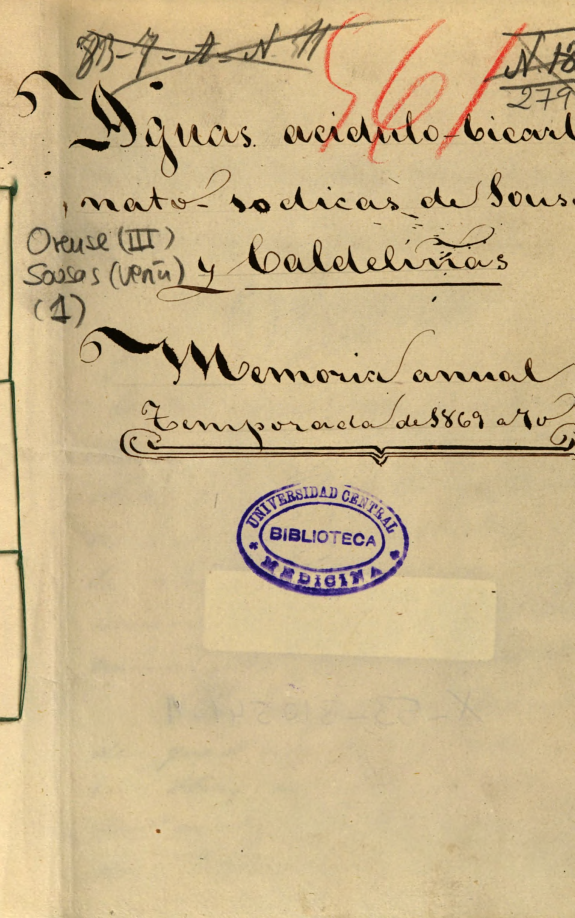 83-7-A-N.11
561
N.18
279
Aguas acidulo-bicarb
nato-sodicas de Sous
y Caldeliñas
Orense (III)
Sousas (Verín)
(1)
Memoria anual
Temporada de 1869 a 70
UNIVERSIDAD CENTRAL
BIBLIOTECA
MEDICINA